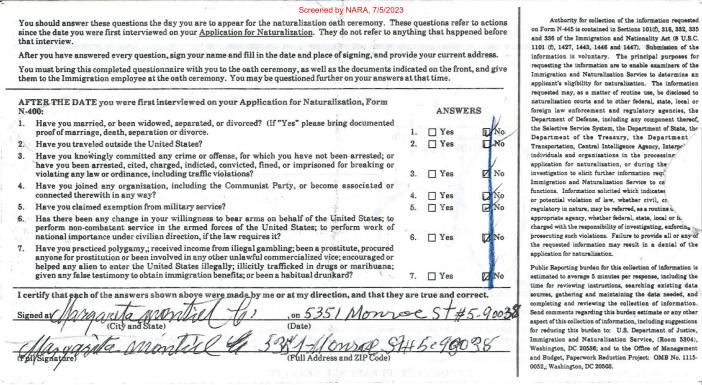 Screened by NARA, 7/5/2023
You should answer these questions the day you are to appear for the naturalization oath ceremony. These questions refer to actions
since the date you were first interviewed on your Application for Naturalization. They do not refer to anything that happened before
that interview.
After you have answered every question, sign your name and fill in the date and place of signing, and provide your current address.
You must bring this completed questionnaire with you to the oath ceremony, as well as the documents indicated on the front, and give
them to the Immigration employee at the oath ceremony. You may be questioned further on your answers at that time.
AFTER THE DATE you were first interviewed on your Application for Naturalization, Form
N-400:
ANSWERS
1. Have you married, or been widowed, separated, or divorced? (If "Yes" please bring documented
proof of marriage, death, separation or divorce.
1. Yes No
2. Have you traveled outside the United States?
2. Yes No
3. Have you knowingly committed any crime or offense, for which you have not been arrested; or
have you been arrested, cited, charged, indicted, convicted, fined, or imprisoned for breaking or
violating any law or ordinance, including traffic violations?
3. Yes No
4. Have you joined any organization, including the Communist Party, or become associated or
connected therewith in any way?
4. Yes No
5. Have you claimed exemption from military service?
5. Yes No
6. Has there been any change in your willingness to bear arms on behalf of the United States; to
perform non-combatant service in the armed forces of the United States; to perform work of
national importance under civilian direction, if the law requires it?
6. Yes No
7. Have you practiced polygamy,; received income from illegal gambling; been a prostitute, procured
anyone for prostitution or been involved in any other unlawful commercialized vice; encouraged or
helped any alien to enter the United States illegally; illicitly trafficked in drugs or marihuana;
given any false testimony to obtain immigration benefits; or been a habitual drunkard?
7. Yes No
I certify that each of the answers shown above were made by me or at my direction, and that they are true and correct.
Signed at Margarita Montiel , on 5351 Monroe St #5-90038
(City and State) (Date)
Margarita Montiel 5351 Monroe St #5 90038
(Full Signature) (Full Address and ZIP Code)
Authority for collection of the information requested
on Form N-445 is contained in Sections 101(f), 316, 332, 335
and 336 of the Immigration and Nationality Act (8 U.S.C.
1101 (f), 1427, 1443, 1446 and 1447). Submission of the
information is voluntary. The principal purposes for
requesting the information are to enable examiners of the
Immigration and Naturalization Service to determine an
applicant's eligibility for naturalization. The information
requested may, as a matter of routine use, be disclosed to
naturalization courts and to other federal, state, local or
foreign law enforcement and regulatory agencies, the
Department of Defense, including any component thereof,
the Selective Service System, the Department of State, the
Department of the Treasury, the Department
Transportation, Central Intelligence Agency, Interpo
individuals and organizations in the processing
application for naturalization, or during the
investigation to elicit further information req
Immigration and Naturalization Service to ca
functions. Information solicited which indicates
or potential violation of law, whether civil, cr
regulatory in nature, may be referred, as a routine u
appropriate agency, whether federal, state, local or
charged with the responsibility of investigating, enforcing
prosecuting such violations. Failure to provide all or any of
the requested information may result in a denial of the
application for naturalization.
Public Reporting burden for this collection of information is
estimated to average 5 minutes per response, including the
time for reviewing instructions, searching existing data
sources, gathering and maintaining the data needed, and
completing and reviewing the collection of information.
Send comments regarding this burden estimate or any other
aspect of this collection of information, including suggestions
for reducing this burden to: U.S. Department of Justice,
Immigration and Naturalization Service, (Room 5304),
Washington, DC 20536; and to the Office of Management
and Budget, Paperwork Reduction Project: OMB No. 1115-
0052,; Washington, DC 20503.